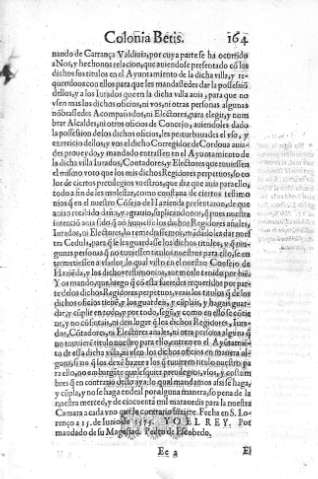 Colonia Betis. 164
nando de Carrança Valdiuia, por cuya parte se ha ocurrido
a Nos, y hechonos relacion, que auiendose presentado cõ los
dichos sus titulos en el Ayuntamiento de la dicha villa, y re-
queridoos con ellos para que les mandassedes dar la possessiõ
dellos, y a los Iurados que en la dicha villa auia, para que no
vsen mis los dichos oficios, ni vos, ni otras personas algunas
nõbrassedes Acompañados, ni Electores, para elegir, y nom
brar Alcaldes, ni otros oficios de Concejo, auiendoles dado
la possession de los dichos oficios, les perturbauades el vso, y
exercicio dellos, y no el dicho Corregidor de Cordoua auia
des proueydo, y mandado entrassen en el Ayuntamiento de
la dicha villa Iurados, Contadores, y Electores que tuuiessen
el mismo voto que los mis dichos Regidores perpetuos, so co
lor de ciertos preuilegios vuestros, que diz que auia para ello,
todo a fin de los molestar, como constaua de ciertos testimo
nios q̃ en el nuestro Cõsejo de Hazienda presentaron, de que
auian recibido daño, y agrauio, suplicandonos, q̃ pues nuestra
intenció
Iurados, ni Electores, lo
Cedula, para q̃ se les guardasse los dichos titulos, y q̃ nin-
gunas personas q̃ no tuuiessen titulos nuestros para ello, se en
tremetiessen a vsarlos, lo qual visto en el nuestro Consejo de
Haziẽda, y los dichos testimonios,
Yo os mando, que luego q̃ con esta fueredes requeridos por par
te de los dichos Regidores perpetuos, veais los titulos q̃ de los
dichos oficios tienẽ, y los guardeis, y cũplais, y hagais guar-
dar, y cũplir en todo, y por todo, segũ, y como en ello se cõtie
ne, y no cõsintais, ni deis lugar q̃ los dichos Regidores, Iura-
dos, Cõtadores, ni Electores anales, ni otra persona alguna q̃
no tuuiere titulo nuestro para ello, entren en el Ayuntamiẽ
to de essa dicha villa, ni vsen los dichos oficios en manera al
guna, si no q̃ los dexẽ hazer a los q̃ tuuieren titulo nuestro pa
ra ello, no embargãte qualesquier preuilegios, vsos, y costum
bres que en contrario dello aya; lo qual mandamos assi se haga,
y cũpla, y no se haga cosa en contrario, so pena de la
nuestra merced, y de cincuenta mil marauedis para nuestra
Camara a cada vno que lo contrario hiziere. Fecha en S. Lo
renço a 15. de Iunio de 1575. YO EL REY. Por
mandado de su Magestad. Pedro de Escobedo.
Ee 2 El